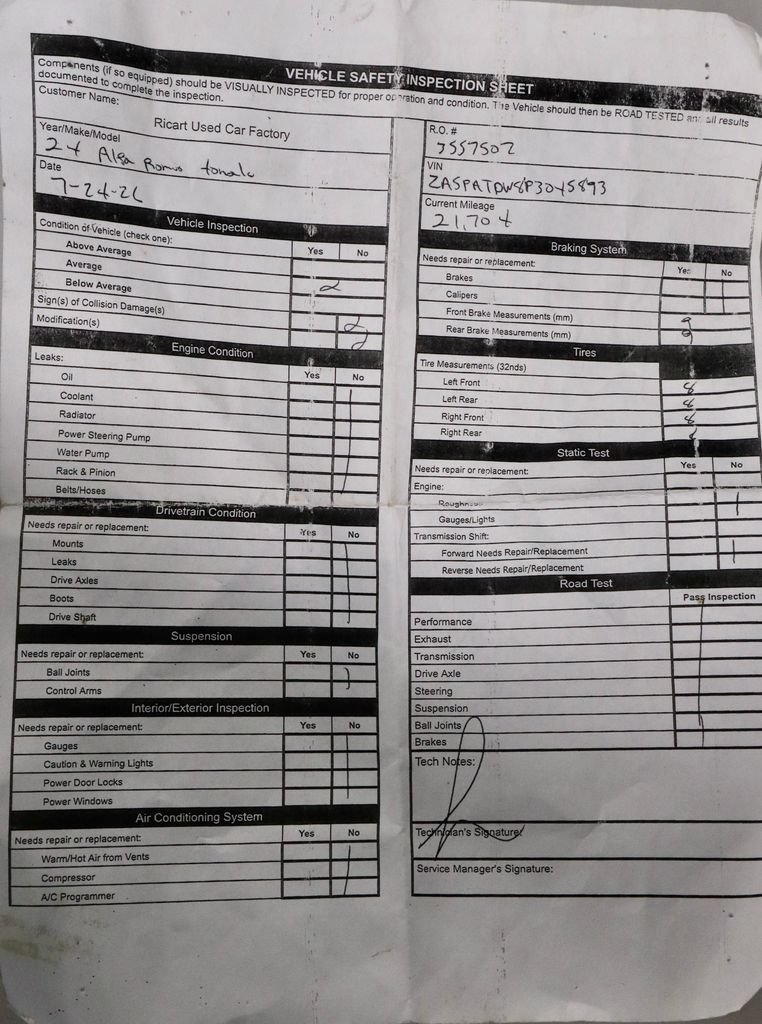 VEHICLE SAFETY INSPECTION SHEET
Components (if so equipped) should be VISUALLY INSPECTED for proper operation and condition. The Vehicle should then be ROAD TESTED and all results
documented to complete the inspection.
Customer Name:
Ricart Used Car Factory
Year/Make/Model
24 Alfa Romo tonale
Date
7-24-26
Vehicle Inspection
Condition of Vehicle (check one):
Yes No
Above Average
Average
Below Average
Sign(s) of Collision Damage(s)
Modification(s)
Engine Condition
Leaks:
Yes No
Oil
Coolant
Radiator
Power Steering Pump
Water Pump
Rack & Pinion
Belts/Hoses
Drivetrain Condition
Needs repair or replacement:
Yes No
Mounts
Leaks
Drive Axles
Boots
Drive Shaft
Suspension
Needs repair or replacement:
Yes No
Ball Joints
Control Arms
Interior/Exterior Inspection
Needs repair or replacement:
Yes No
Gauges
Caution & Warning Lights
Power Door Locks
Power Windows
Air Conditioning System
Needs repair or replacement:
Yes No
Warm/Hot Air from Vents
Compressor
A/C Programmer
R.O. #
3557502
VIN
Current Mileage
21,704
Braking System
Needs repair or replacement:
Yes No
Brakes
Calipers
Front Brake Measurements (mm) 9
Rear Brake Measurements (mm) 9
Tires
Tire Measurements (32nds)
Left Front 8
Left Rear 8
Right Front 8
Right Rear 8
Static Test
Needs repair or replacement:
Yes No
Engine:
Roughness
Gauges/Lights
Transmission Shift:
Forward Needs Repair/Replacement
Reverse Needs Repair/Replacement
Road Test
Pass Inspection
Performance
Exhaust
Transmission
Drive Axle
Steering
Suspension
Ball Joints
Brakes
Tech Notes:
Technician's Signature:
Service Manager's Signature: